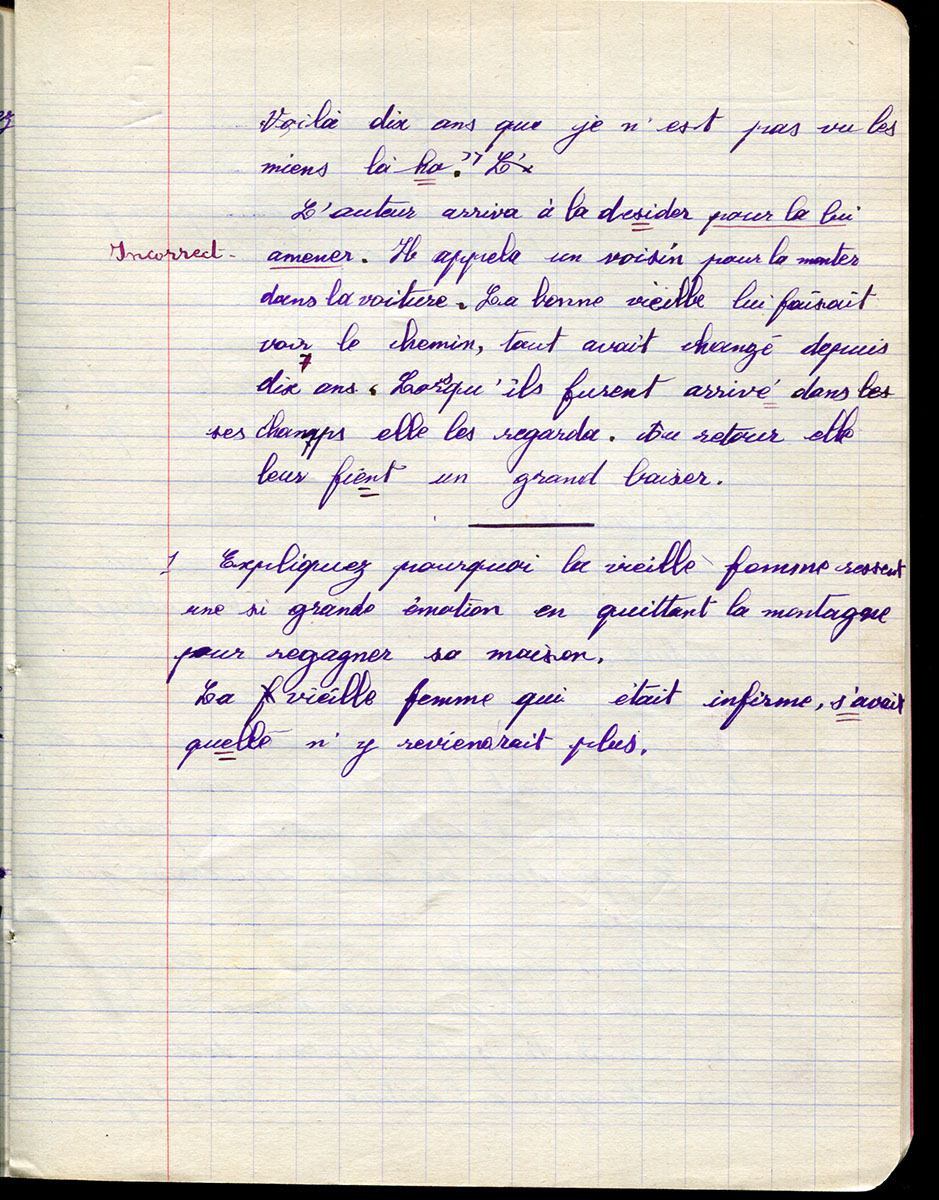 Voilà dix ans que je n'est pas vu les
miens là ho." L'
L'auteur arriva à la desider pour la lui
Incorrect- amener. Il appela un voisin pour la monter
dans la voiture. La bonne vieille lui faisait
voir le chemin, tout avait changé depuis
dix ans. Lorsqu'ils furent arrivé dans les
ses champs elle les regarda. Au retour elle
leur fient un grand baiser.
1 Expliquez pourquoi la vieille femme ressent
une si grande émotion en quittant la montagne
pour regagner sa maison.
La f vieille femme qui était infirme, s'avait
quelle n'y reviendrait plus.